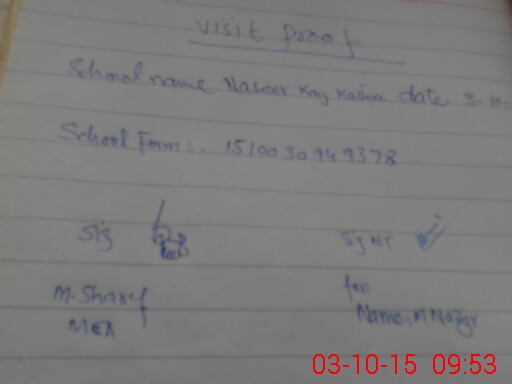 visit proof
School name Naseer Kay Kalan date 3-10-
School Emm:. 151003094 9378
Sig
Sig HT
M. Sharif
for
MEA
Name. M Nazir
03-10-15 09:53